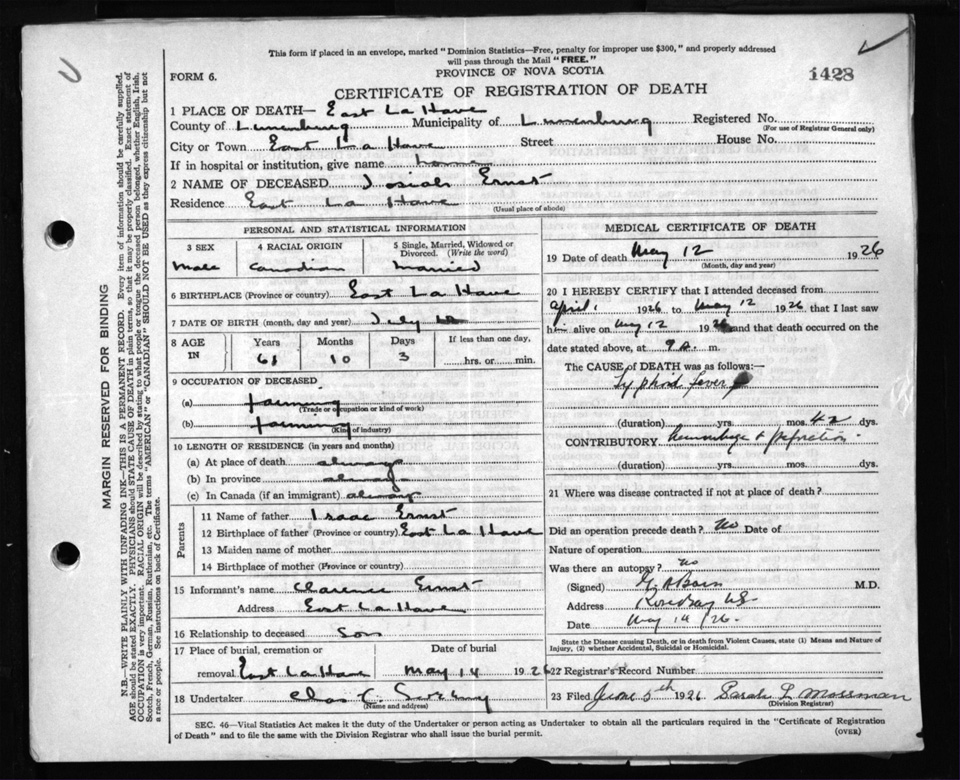 This form if placed in an envelope, marked "Dominion Statistics—Free, penalty for improper use $300," and properly addressed
will pass through the Mail "FREE."
FORM 6.
PROVINCE OF NOVA SCOTIA
1428
CERTIFICATE OF REGISTRATION OF DEATH
1 PLACE OF DEATH— East La Have
County of Lunenburg Municipality of Lunenburg Registered No.
(For use of Registrar General only)
City or Town East La Have Street House No.
If in hospital or institution, give name
2 NAME OF DECEASED Josiah Ernst
Residence East La Have
(Usual place of abode)
PERSONAL AND STATISTICAL INFORMATION
3 SEX 4 RACIAL ORIGIN 5 Single, Married, Widowed or Divorced. (Write the word)
Male Canadian Married
6 BIRTHPLACE (Province or country) East La Have
7 DATE OF BIRTH (month, day and year) July
8 AGE IN Years Months Days If less than one day,
61 10 3 hrs. or min.
9 OCCUPATION OF DECEASED
(a) farming
(Trade or occupation or kind of work)
(b) farming
(Kind of industry)
10 LENGTH OF RESIDENCE (in years and months)
(a) At place of death always
(b) In province always
(c) In Canada (if an immigrant) always
Parents
11 Name of father Isaac Ernst
12 Birthplace of father (Province or country) East La Have
13 Maiden name of mother
14 Birthplace of mother (Province or country)
15 Informant's name Clarence Ernst
Address East La Have
16 Relationship to deceased Son
17 Place of burial, cremation or Date of burial
removal East La Have May 14 1926
18 Undertaker Chas
(Name and address)
MEDICAL CERTIFICATE OF DEATH
19 Date of death May 12 1926
(Month, day and year)
20 I HEREBY CERTIFY that I attended deceased from
April 1 1926 to May 12 1926 that I last saw
him alive on May 12 1926 and that death occurred on the
date stated above, at 9 a. m.
The CAUSE of DEATH was as follows:—
Typhoid fever
(duration) yrs. mos. 42 dys.
CONTRIBUTORY hemorrhage & perforation
(duration) yrs. mos. dys.
21 Where was disease contracted if not at place of death?
Did an operation precede death? No Date of
Nature of operation
Was there an autopsy? no
(Signed) M.D.
Address Rose Bay NS
Date May 14/26.
State the Disease causing Death, or in death from Violent Causes, state (1) Means and Nature of
Injury, (2) whether Accidental, Suicidal or Homicidal.
22 Registrar's Record Number
23 Filed June 5th 1926 Sarah L Mossman
(Division Registrar)
SEC. 46—Vital Statistics Act makes it the duty of the Undertaker or person acting as Undertaker to obtain all the particulars required in the "Certificate of Registration
of Death" and to file the same with the Division Registrar who shall issue the burial permit.
(OVER)
MARGIN RESERVED FOR BINDING
N.B.—WRITE PLAINLY WITH UNFADING INK—THIS IS A PERMANENT RECORD. Every item of information should be carefully supplied.
AGE should be stated EXACTLY. PHYSICIANS should STATE CAUSE OF DEATH in plain terms, so that it may be properly classified. Exact statement of
OCCUPATION is very important. RACIAL ORIGIN will be described by stating to what people or tongue the deceased person belonged, whether English, Irish,
Scotch, French, German, Russian, Ruthenian, etc. The terms "AMERICAN" or "CANADIAN" SHOULD NOT BE USED as they express citizenship but not
a race or people. See instructions on back of Certificate.